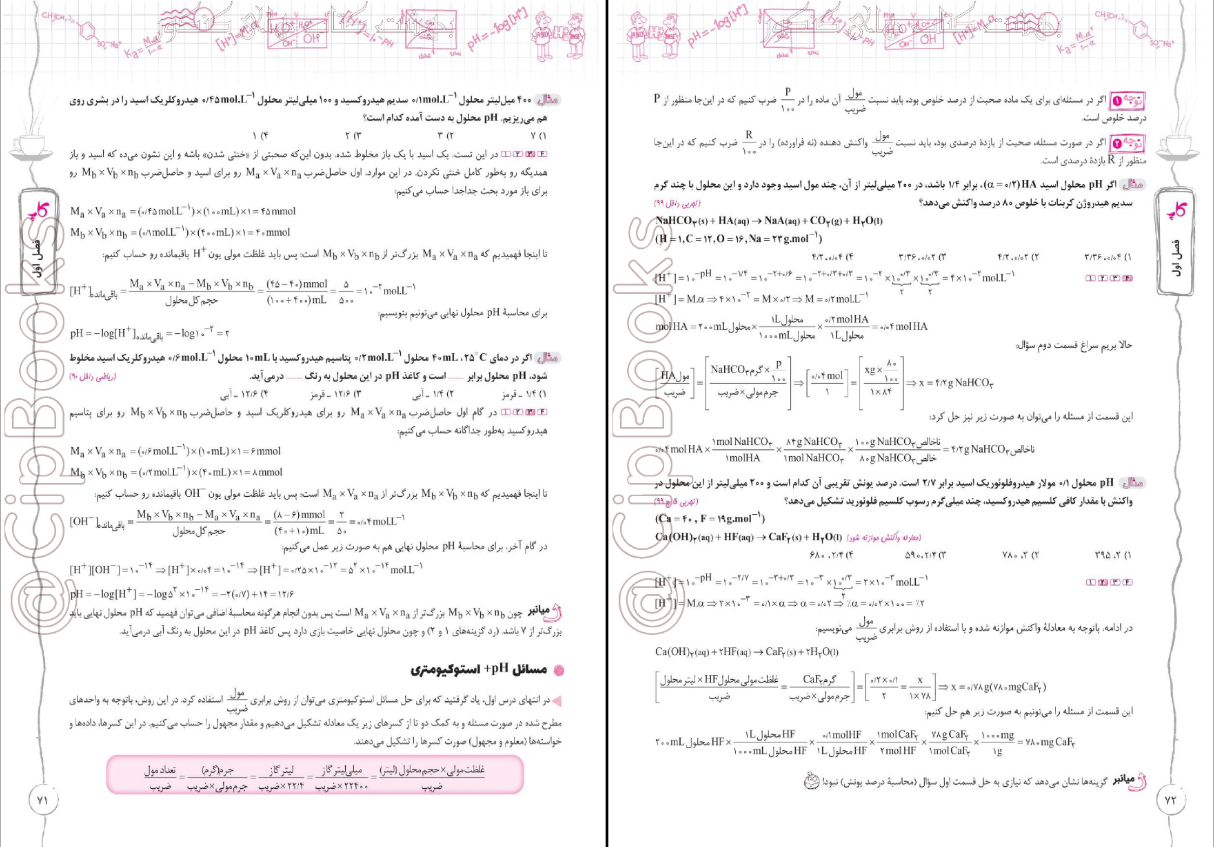 مثال ۴۰۰ میل‌لیتر محلول ۰/۱mol.L⁻¹ سدیم هیدروکسید و ۱۰۰ میلی‌لیتر محلول ۰/۴۵mol.L⁻¹ هیدروکلریک اسید را در بشری روی
هم می‌ریزیم. pH محلول به دست آمده کدام است؟
۱) ۷ ۲) ۳ ۳) ۲ ۴) ۱
۱ ۲ ۳ ۴ در این تست، یک اسید با یک باز مخلوط شده، بدون این‌که صحبتی از «خنثی شدن» باشه و این نشون می‌ده که اسید و باز
همدیگه رو به‌طور کامل خنثی نکردن. در این موارد، اول حاصل‌ضرب Ma × Va × na رو برای اسید و حاصل‌ضرب Mb × Vb × nb رو
برای باز مورد بحث جداجدا حساب می‌کنیم:
Ma × Va × na = (۰/۴۵mol.L⁻¹)×(۱۰۰mL)×۱ = ۴۵mmol
Mb × Vb × nb = (۰/۱mol.L⁻¹)×(۴۰۰mL)×۱ = ۴۰mmol
تا اینجا فهمیدیم که Ma × Va × na بزرگ‌تر از Mb × Vb × nb است؛ پس باید غلظت مولی یون H⁺ باقیمانده رو حساب کنیم:
[H⁺]باقی‌مانده = (Ma × Va × na − Mb × Vb × nb)/حجم کل محلول = (۴۵−۴۰)mmol/(۱۰۰+۴۰۰)mL = ۵/۵۰۰ = ۱۰⁻² mol.L⁻¹
برای محاسبهٔ pH محلول نهایی می‌تونیم بنویسیم:
pH = −log[H⁺]باقی‌مانده = −log۱۰⁻² = ۲
مثال اگر در دمای ۲۵°C، ۴۰mL محلول ۰/۲mol.L⁻¹ پتاسیم هیدروکسید با ۱۰mL محلول ۰/۶mol.L⁻¹ هیدروکلریک اسید مخلوط
شود، pH محلول برابر ........ است و کاغذ pH در این محلول به رنگ ........ درمی‌آید. (ریاضی داخل ۹۰)
۱) ۱/۴ ـ قرمز ۲) ۱/۴ ـ آبی ۳) ۱۲/۶ ـ قرمز ۴) ۱۲/۶ ـ آبی
۱ ۲ ۳ ۴ در گام اول حاصل‌ضرب Ma × Va × na رو برای هیدروکلریک اسید و حاصل‌ضرب Mb × Vb × nb رو برای پتاسیم
هیدروکسید به‌طور جداگانه حساب می‌کنیم:
Ma × Va × na = (۰/۶mol.L⁻¹)×(۱۰mL)×۱ = ۶mmol
Mb × Vb × nb = (۰/۲mol.L⁻¹)×(۴۰mL)×۱ = ۸mmol
تا اینجا فهمیدیم که Mb × Vb × nb بزرگ‌تر از Ma × Va × na است؛ پس باید غلظت مولی یون OH⁻ باقیمانده رو حساب کنیم:
[OH⁻]باقی‌مانده = (Mb × Vb × nb − Ma × Va × na)/حجم کل محلول = (۸−۶)mmol/(۴۰+۱۰)mL = ۲/۵۰ = ۰/۰۴mol.L⁻¹
در گام آخر، برای محاسبهٔ pH محلول نهایی هم به صورت زیر عمل می‌کنیم:
[H⁺][OH⁻] = ۱۰⁻¹⁴ ⇒ [H⁺]×۰/۰۴ = ۱۰⁻¹⁴ ⇒ [H⁺] = ۰/۲۵×۱۰⁻¹² = ۵²×۱۰⁻¹⁴ mol.L⁻¹
pH = −log[H⁺] = −log۵²×۱۰⁻¹⁴ = −۲(۰/۷)+۱۴ = ۱۲/۶
میانبر چون Mb × Vb × nb بزرگ‌تر از Ma × Va × na است پس بدون انجام هرگونه محاسبهٔ اضافی می‌توان فهمید که pH محلول نهایی باید
بزرگ‌تر از ۷ باشد. (رد گزینه‌های ۱ و ۲) و چون محلول نهایی خاصیت بازی دارد پس کاغذ pH در این محلول به رنگ آبی درمی‌آید.
مسائل pH+ استوکیومتری
در انتهای درس اول، یاد گرفتید که برای حل مسائل استوکیومتری می‌توان از روش برابری مول/ضریب استفاده کرد. در این روش، باتوجه به واحدهای
مطرح شده در صورت مسئله و به کمک دو تا از کسرهای زیر یک معادله تشکیل می‌دهیم و مقدار مجهول را حساب می‌کنیم. در این کسرها، داده‌ها و
خواسته‌ها (معلوم و مجهول) صورت کسرها را تشکیل می‌دهند.
تعداد مول/ضریب = جرم(گرم)/جرم مولی×ضریب = لیتر گاز/۲۲/۴×ضریب = میلی‌لیتر گاز/۲۲۴۰۰×ضریب = غلظت مولی×حجم محلول (لیتر)/ضریب
فصل اول
۷۱
توجه ۱ اگر در مسئله‌ای برای یک ماده صحبت از درصد خلوص بود، باید نسبت مول/ضریب آن ماده را در P/۱۰۰ ضرب کنیم که در این‌جا منظور از P
درصد خلوص است.
توجه ۲ اگر در صورت مسئله، صحبت از بازدهٔ درصدی بود، باید نسبت مول/ضریب واکنش دهنده (نه فراورده) را در R/۱۰۰ ضرب کنیم که در این‌جا
منظور از R بازدهٔ درصدی است.
مثال اگر pH محلول اسید HA (α = ۰/۲)، برابر ۱/۴ باشد، در ۲۰۰ میلی‌لیتر از آن، چند مول اسید وجود دارد و این محلول با چند گرم
سدیم هیدروژن کربنات با خلوص ۸۰ درصد واکنش می‌دهد؟ (تجربی داخل ۹۹)
NaHCO₃(s) + HA(aq) → NaA(aq) + CO₂(g) + H₂O(l)
(H = ۱, C = ۱۲, O = ۱۶, Na = ۲۳g.mol⁻¹)
۱) ۳/۳۶ ،۰/۰۴ ۲) ۴/۲ ،۰/۰۲ ۳) ۳/۳۶ ،۰/۰۲ ۴) ۴/۲ ،۰/۰۴
۱ ۲ ۳ ۴ [H⁺] = ۱۰^−pH = ۱۰^−۱/۴ = ۱۰^−۲+۰/۶ = ۱۰^−۲+۰/۳+۰/۳ = ۱۰⁻² × ۱۰^۰/۳ × ۱۰^۰/۳ = ۴×۱۰⁻² mol.L⁻¹
[H⁺] = M.α ⇒ ۴×۱۰⁻² = M×۰/۲ ⇒ M = ۰/۲mol.L⁻¹
molHA = ۲۰۰mLمحلول × ۱Lمحلول/۱۰۰۰mLمحلول × ۰/۲molHA/۱Lمحلول = ۰/۰۴molHA
حالا بریم سراغ قسمت دوم سؤال:
[مولHA/ضریب] = [گرمNaHCO₃ × P/۱۰۰/جرم مولی×ضریب] ⇒ [۰/۰۴mol/۱] = [xg × ۸۰/۱۰۰/۱×۸۴] ⇒ x = ۴/۲g NaHCO₃
این قسمت از مسئله را می‌توان به صورت زیر نیز حل کرد:
۰/۰۴molHA × ۱molNaHCO₃/۱molHA × ۸۴g NaHCO₃/۱molNaHCO₃ × ۱۰۰g NaHCO₃ناخالص/۸۰g NaHCO₃خالص = ۴/۲g NaHCO₃ناخالص
مثال pH محلول ۰/۱ مولار هیدروفلوئوریک اسید برابر ۲/۷ است. درصد یونش تقریبی آن کدام است و ۲۰۰ میلی‌لیتر از این محلول در
واکنش با مقدار کافی کلسیم هیدروکسید، چند میلی‌گرم رسوب کلسیم فلئورید تشکیل می‌دهد؟
(Ca = ۴۰, F = ۱۹g.mol⁻¹)
Ca(OH)₂(aq) + HF(aq) → CaF₂(s) + H₂O(l) (معادله واکنش موازنه شود)
۱) ۲، ۳۹۵ ۲) ۲، ۷۸۰ ۳) ۲/۴، ۵۹۰ ۴) ۲/۴، ۶۸۰
۱ ۲ ۳ ۴ [H⁺] = ۱۰^−pH = ۱۰^−۲/۷ = ۱۰^−۳+۰/۳ = ۱۰⁻³ × ۱۰^۰/۳ = ۲×۱۰⁻³ mol.L⁻¹
[H⁺] = M.α ⇒ ۲×۱۰⁻³ = ۰/۱×α ⇒ α = ۰/۰۲ ⇒ ٪α = ۰/۰۲×۱۰۰ = ٪۲
در ادامه، باتوجه به معادلهٔ واکنش موازنه شده و با استفاده از روش برابری مول/ضریب می‌نویسیم:
Ca(OH)₂(aq) + ۲HF(aq) → CaF₂(s) + ۲H₂O(l)
[غلظت مولی محلولHF×لیتر محلول/ضریب] = [گرمCaF₂/جرم مولی×ضریب] = [۰/۲×۰/۱/۲ = x/۱×۷۸] ⇒ x = ۰/۷۸g(۷۸۰mgCaF₂)
این قسمت از مسئله را می‌تونیم به صورت زیر هم حل کنیم:
۲۰۰mL محلول HF × ۱L محلول HF/۱۰۰۰mL محلول HF × ۰/۱molHF/۱L محلول HF × ۱molCaF₂/۲molHF × ۷۸g CaF₂/۱molCaF₂ × ۱۰۰۰mg/۱g = ۷۸۰mg CaF₂
میانبر گزینه‌ها نشان می‌دهد که نیازی به حل قسمت اول سؤال (محاسبهٔ درصد یونش) نبود!
فصل اول
۷۲
@CipBooks
@CipBooks